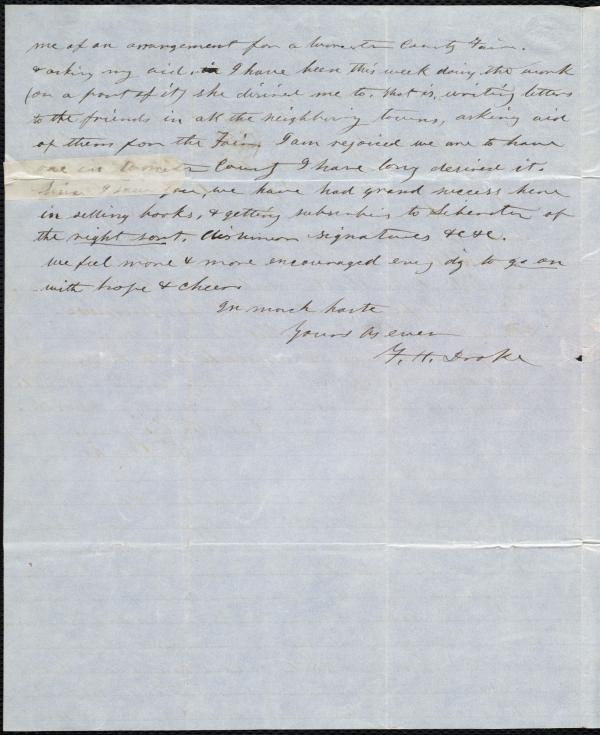 me of an arrangement for a Worcester County Fair.
& asking my aid. I have been this week doing the work
(or a part of it) she desired me to. that is, writing letters
to the friends in all the neighboring towns, asking aid
of them for the Fair, I am rejoiced we are to have
one in Worcester County I have long desired it.
Since I saw you, we have had grand success here
in selling books, & getting subscribers to Liberator of
the right sort, disunion signatures &c &c.
We feel more & more encouraged every day to go on
with hope & cheer
In much haste
Yours as ever
F. H. Drake